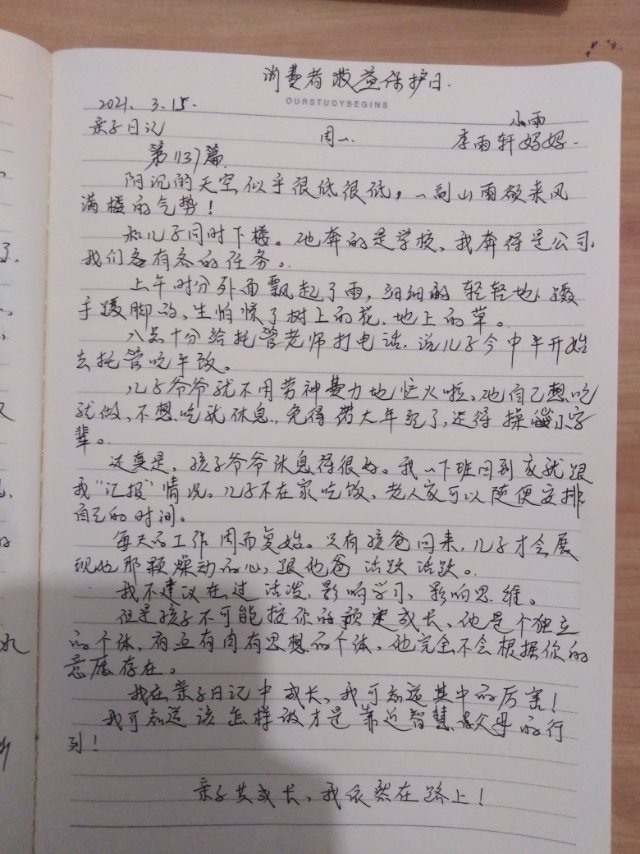 消费者权益保护日.
OURSTUDYBEGINS
2021. 3.15. 小雨
亲子日记 周一. 李雨轩妈妈.
第1137篇
阴沉的天空似乎很低很低，一副山雨欲来风
满楼的气势！
和儿子同时下楼。他奔的是学校、我奔得是公司,
我们各有各的任务。
上午时分外面飘起了雨，细细的 轻轻地、蹑
手蹑脚的，生怕惊了树上的花、地上的草。
八点十分给托管老师打电话，说儿子今中午开始
去托管吃午饭。
儿子爷爷就不用劳神费力地忙火啦。他自己想吃
就做、不想吃就休息、免得 大年纪了，还得 操 小字
辈。
还真是，孩子爷爷休息得很好。我一下班回到家就跟
我“汇报”情况。儿子不在家吃饭，老人家可以随便安排
自己的时间。
每天的工作周而复始。只有孩爸回来，儿子才会展
现他那颗燥动的心，跟他爸 活跃 活跃。
我不建议在过 活泼、影响学习、影响思维。
但是孩子不可能按你的预定成长、他是个独立
的个体，有血有肉有思想的个体、他完全不会根据你的
意愿存在。
我在亲子日记中成长、我可知道其中的厉害！
我可知道该怎样做才是靠近智慧父母的行
列！
亲子共成长、我依然在路上！